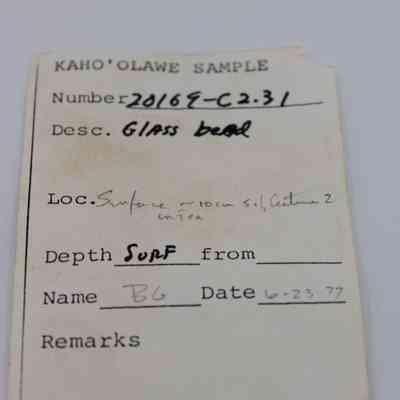 KAHO'OLAWE SAMPLE
Number 20169-C2.31
Desc. Glass bead
Loc. Surface ~10cm
Depth SURF from
Name BG Date 6-23-77
Remarks